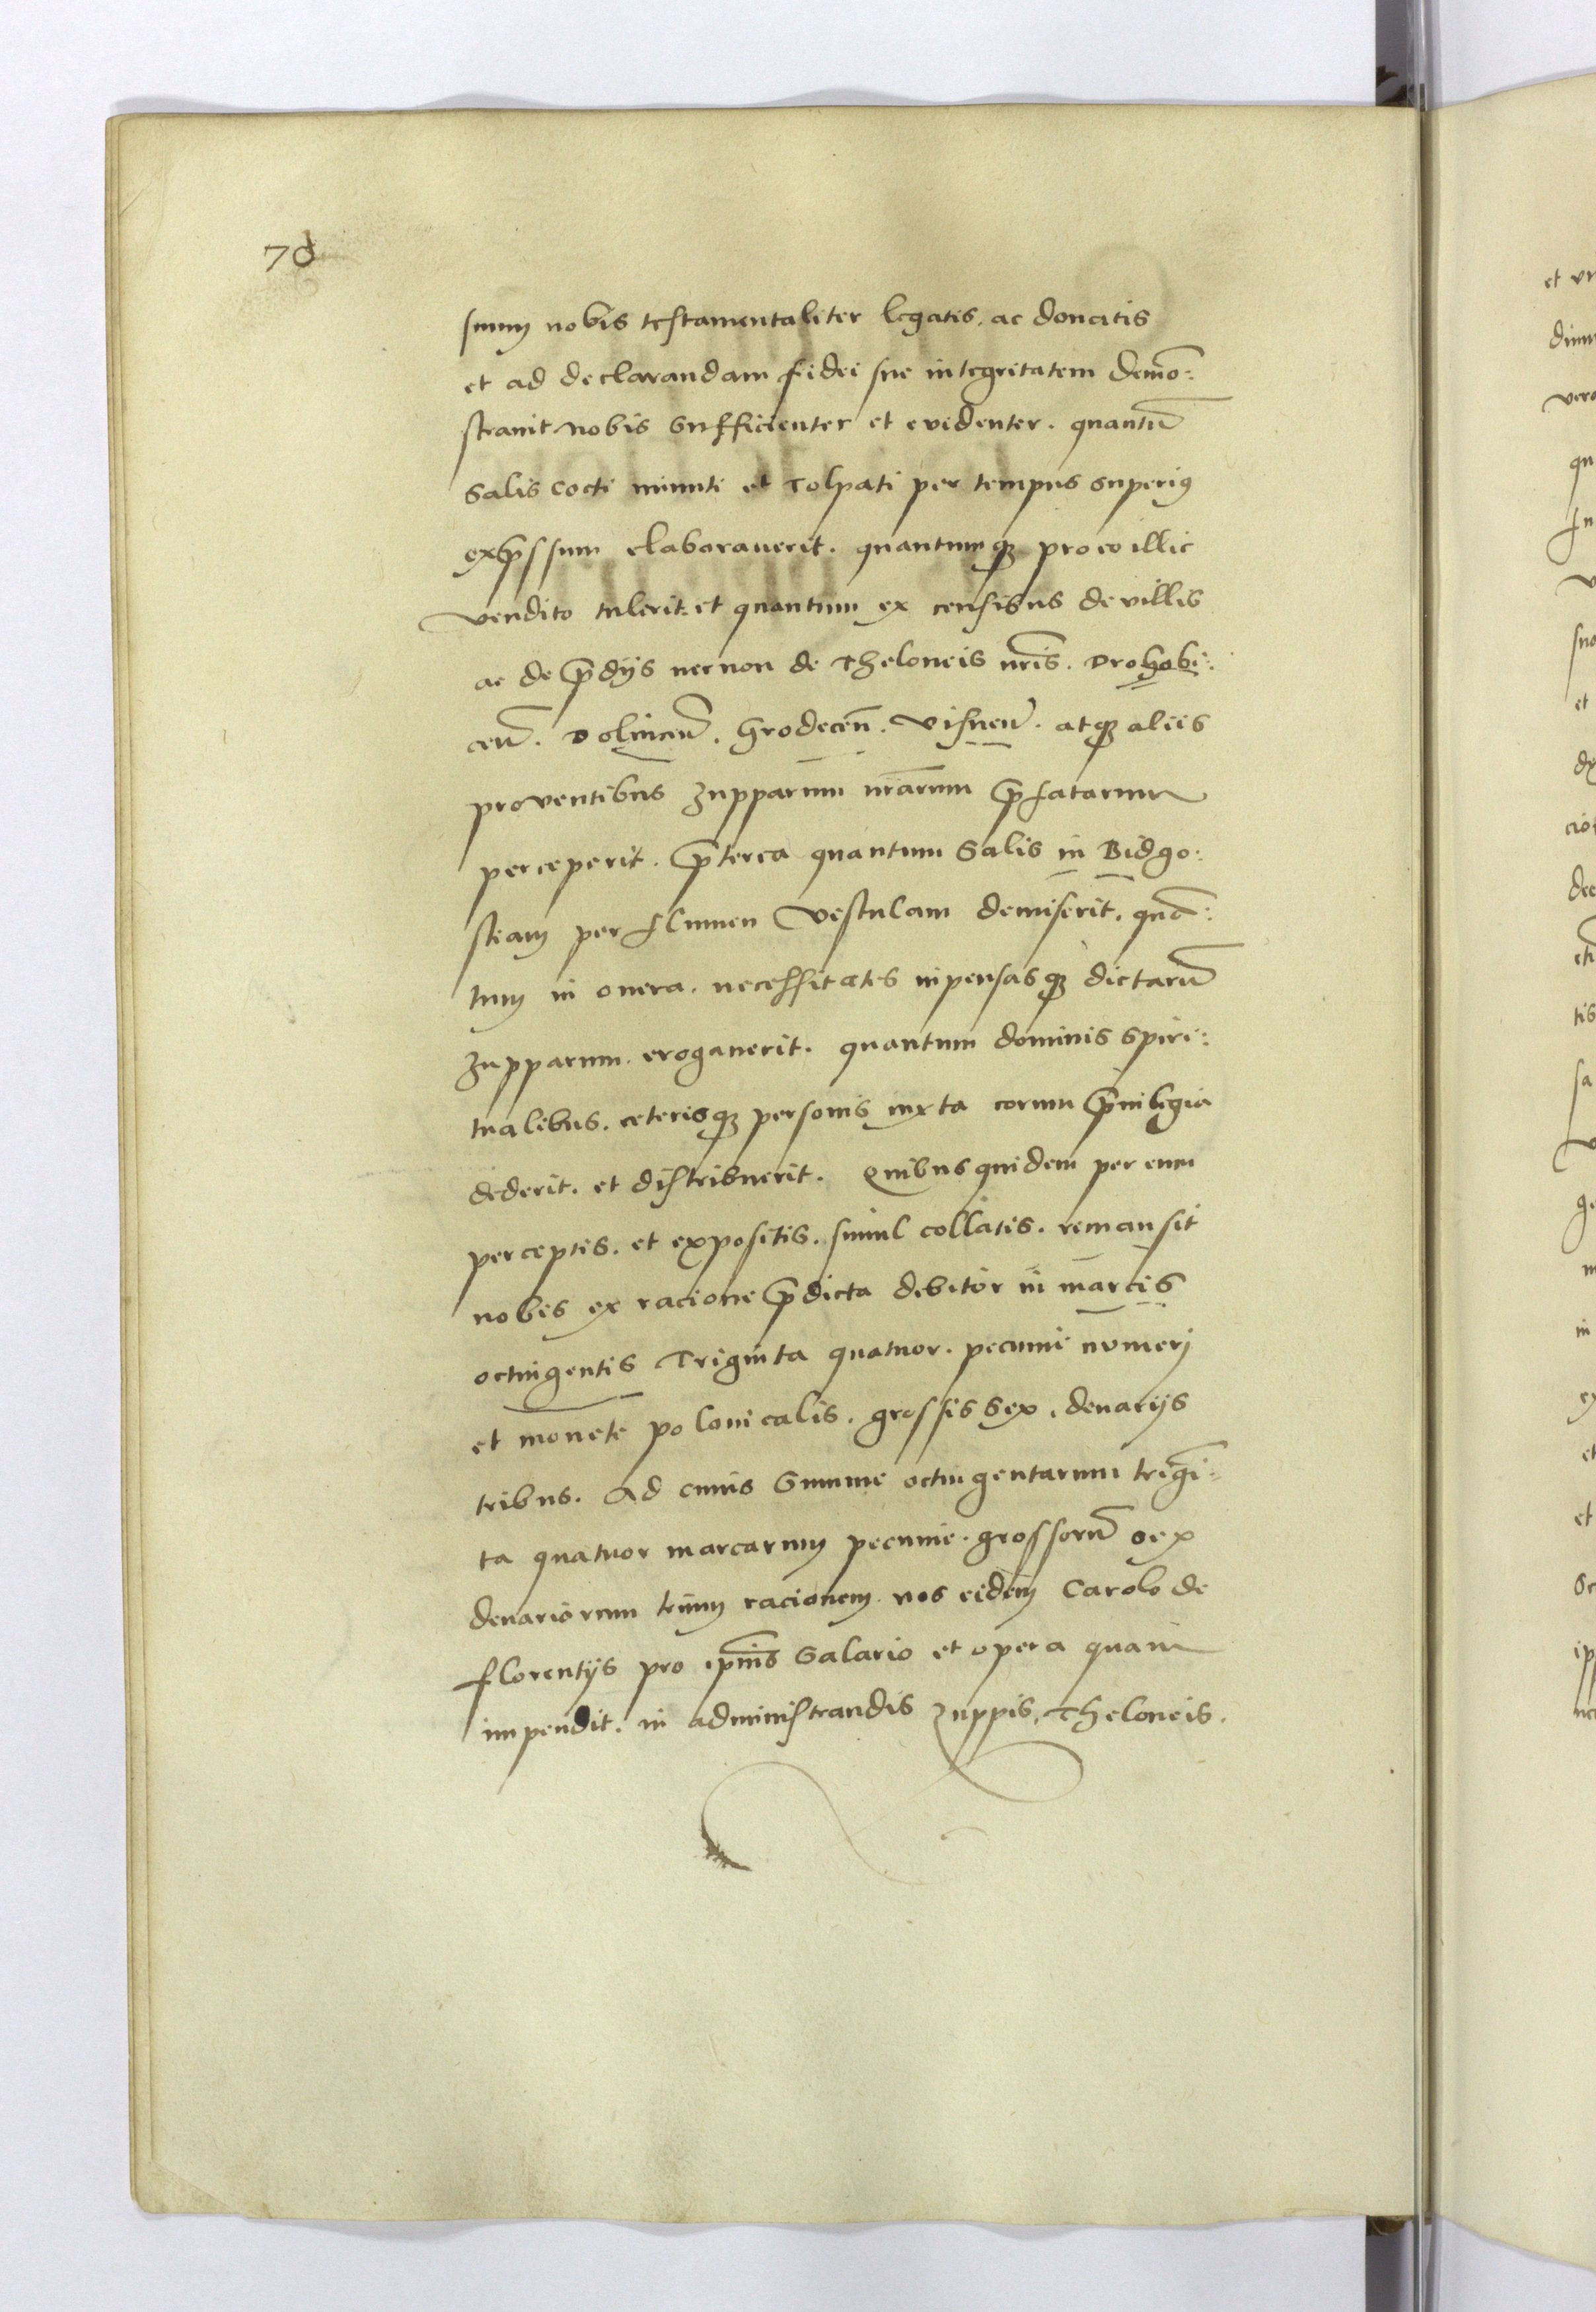 70
suum nobis testamentaliter legatis. ac donatis
et ad declarandam fidei sue integritatem demō:
stravit nobis sufficienter et evidenter. quantū
salis cocti minuti et tolpati per tempus superiꝯ
exp̄ssum elaboraverit. quantumqȝ pro eo illic
vendito tulerit. et quantum ex censibus de villis
ac de p̄dijs necnon de theloneis nr̄is. Drohobi:
ceñ. Dolineñ. Grodeceñ. Visneñ. atqȝ aliis
proventibus zupparum nr̄arum p̄fatarum
perceperit. p̄terea quantum salis in Bidgo:
stiam per flumen Vestulam demiserit. quā:
tum in onera. necessitates inpensasqȝ dictarū
zupparum. erogaverit. quantum dominis spiri:
tualibus. ceterisqȝ personis iuxta eorum p̄vilegia
dederit. et distribuerit. Quibus quidem per eum
perceptis. et expositis. simul collatis. remansit
nobis ex racione p̄dicta debitor in marcis
octingentis triginta quatuor. pecunie numerj
et monete polonicalis. grossis sex. denarijs
tribus. Ad cuius summe octingentarum trigī:
ta quatuor marcarum pecunie. grossorū sex
denariorum trium racionem. nos eidem Carolo de
florentijs pro ip̄ius salario et opera quam
impendit. in administrandis zuppis, theloneis.
et
qu
et
tis
sa
in
et
et
ip